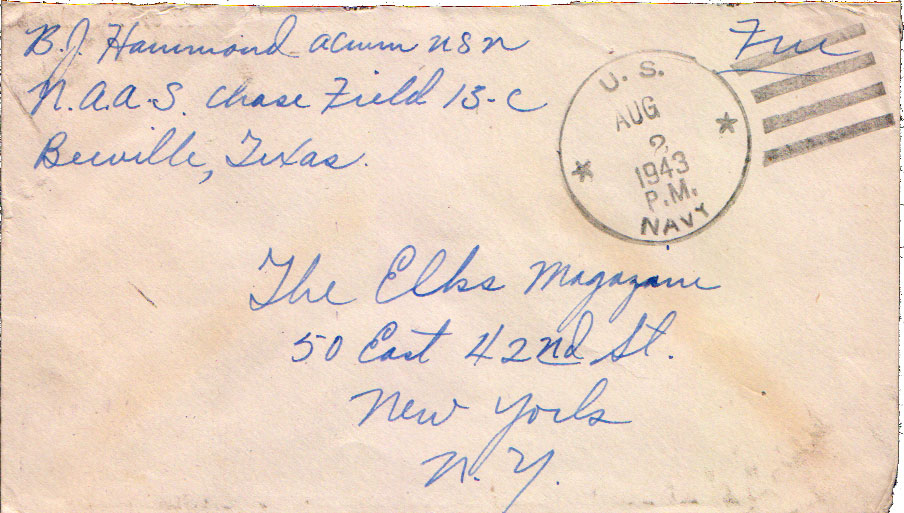 B.J. Hammond acmm USN
Free
N.A.A.S. Chase Field 13-C
Beeville, Texas.
U. S.
AUG
2
1943
P.M.
NAVY
The Elks Magazine
50 East 42nd St.
New York
N.Y.